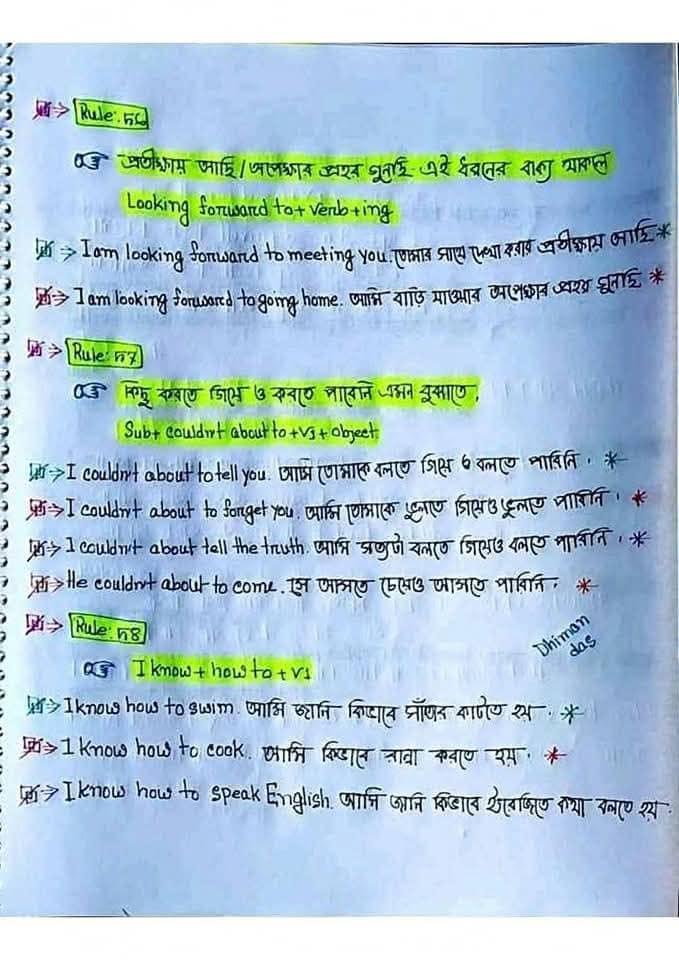 Rule: ৭৬
প্রতীক্ষায় আছি/অপেক্ষার প্রহর গুনছি এই ধরনের বাক্য থাকলে
Looking forward to + verb + ing
I am looking forward to meeting you. তোমার সাথে দেখা করার প্রতীক্ষায় আছি *
I am looking forward to going home. আমি বাড়ি যাওয়ার অপেক্ষার প্রহর গুনছি *
Rule: ৭7
কিছু করতে গিয়ে ও করতে পারেনি এমন বুঝাতে,
Sub + couldn't about to + v1 + object
I couldn't about to tell you. আমি তোমাকে বলতে গিয়ে ও বলতে পারিনি. *
I couldn't about to forget you. আমি তোমাকে ভুলতে গিয়েও ভুলতে পারিনি. *
I couldn't about tell the truth. আমি সত্যটা বলতে গিয়েও বলতে পারিনি. *
He couldn't about to come. সে আসতে চেয়েও আসতে পারিনি. *
Rule: ৭8
Dhiman
das
I know + how to + v1
I know how to swim. আমি জানি কিভাবে সাঁতার কাটতে হয়. *
I know how to cook. আমি কিভাবে রান্না করতে হয়. *
I know how to speak English. আমি জানি কিভাবে ইংরেজিতে কথা বলতে হয়.